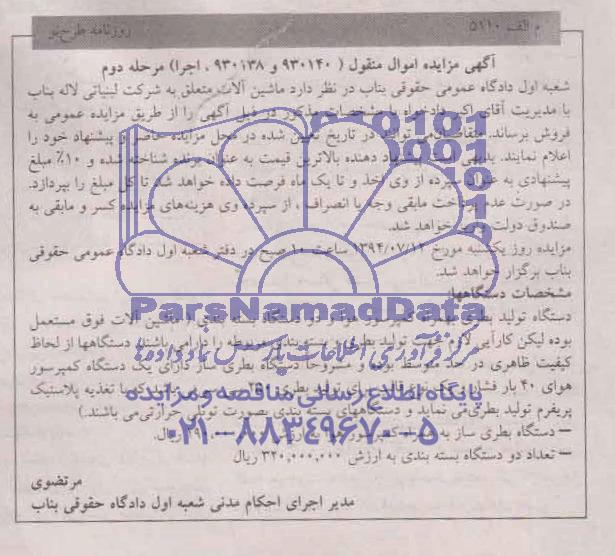 م الف ۵۱۱۰ روزنامه طرح نو
آگهی مزایده اموال منقول ( ۹۳۰۱۴۰ و ۹۳۰۱۳۸ ، اجرا) مرحله دوم
شعبه اول دادگاه عمومی حقوقی بناب در نظر دارد ماشین آلات متعلق به شرکت لبنیاتی لاله بناب
با مدیریت آقای اکبر دادخواه با مشخصات مذکور در ذیل آگهی را از طریق مزایده عمومی به
فروش برساند. متقاضیان می توانند در تاریخ تعیین شده در محل مزایده حاضر و پیشنهاد خود را
اعلام نمایند. بدیهی است پیشنهاد دهنده بالاترین قیمت به عنوان برنده شناخته شده و ۱۰٪ مبلغ
پیشنهادی به عنوان سپرده از وی اخذ و تا یک ماه فرصت داده خواهد شد تا کل مبلغ را بپردازد.
در صورت عدم پرداخت مابقی وجه یا انصراف ، از سپرده وی هزینه‌های مزایده کسر و مابقی به
صندوق دولت واریز خواهد شد.
مزایده روز یکشنبه مورخ ۱۳۹۴/۰۷/۱۲ ساعت ۱۰ صبح در دفتر شعبه اول دادگاه عمومی حقوقی
بناب برگزار خواهد شد.
مشخصات دستگاهها:
دستگاه تولید بطری کمپرسور هوا و دو دستگاه بسته بندی ( ماشین آلات فوق مستعمل
بوده لیکن کارآیی لازم جهت تولید بطری و بسته‌بندی مربوطه را دارا می باشند) دستگاهها از لحاظ
کیفیت ظاهری در حد متوسط بوده و مشروحا دستگاه بطری ساز دارای یک دستگاه کمپرسور
هوای ۴۰ بار فشار برای تولید بطری که با تغذیه پلاستیک
پریفرم تولید بطری می نماید و دستگاههای بسته بندی بصورت تونلی حرارتی می باشند.)
– دستگاه بطری ساز به ریال.
– تعداد دو دستگاه بسته بندی به ارزش ۳۲۰,۰۰۰,۰۰۰ ریال.
مرتضوی
مدیر اجرای احکام مدنی شعبه اول دادگاه حقوقی بناب
ParsNamadData
مرکز فرآوری اطلاعات پارس نماد داده ها
پایگاه اطلاع رسانی مناقصه و مزایده
۰۲۱-۸۸۳۴۹۶۷۰-۵